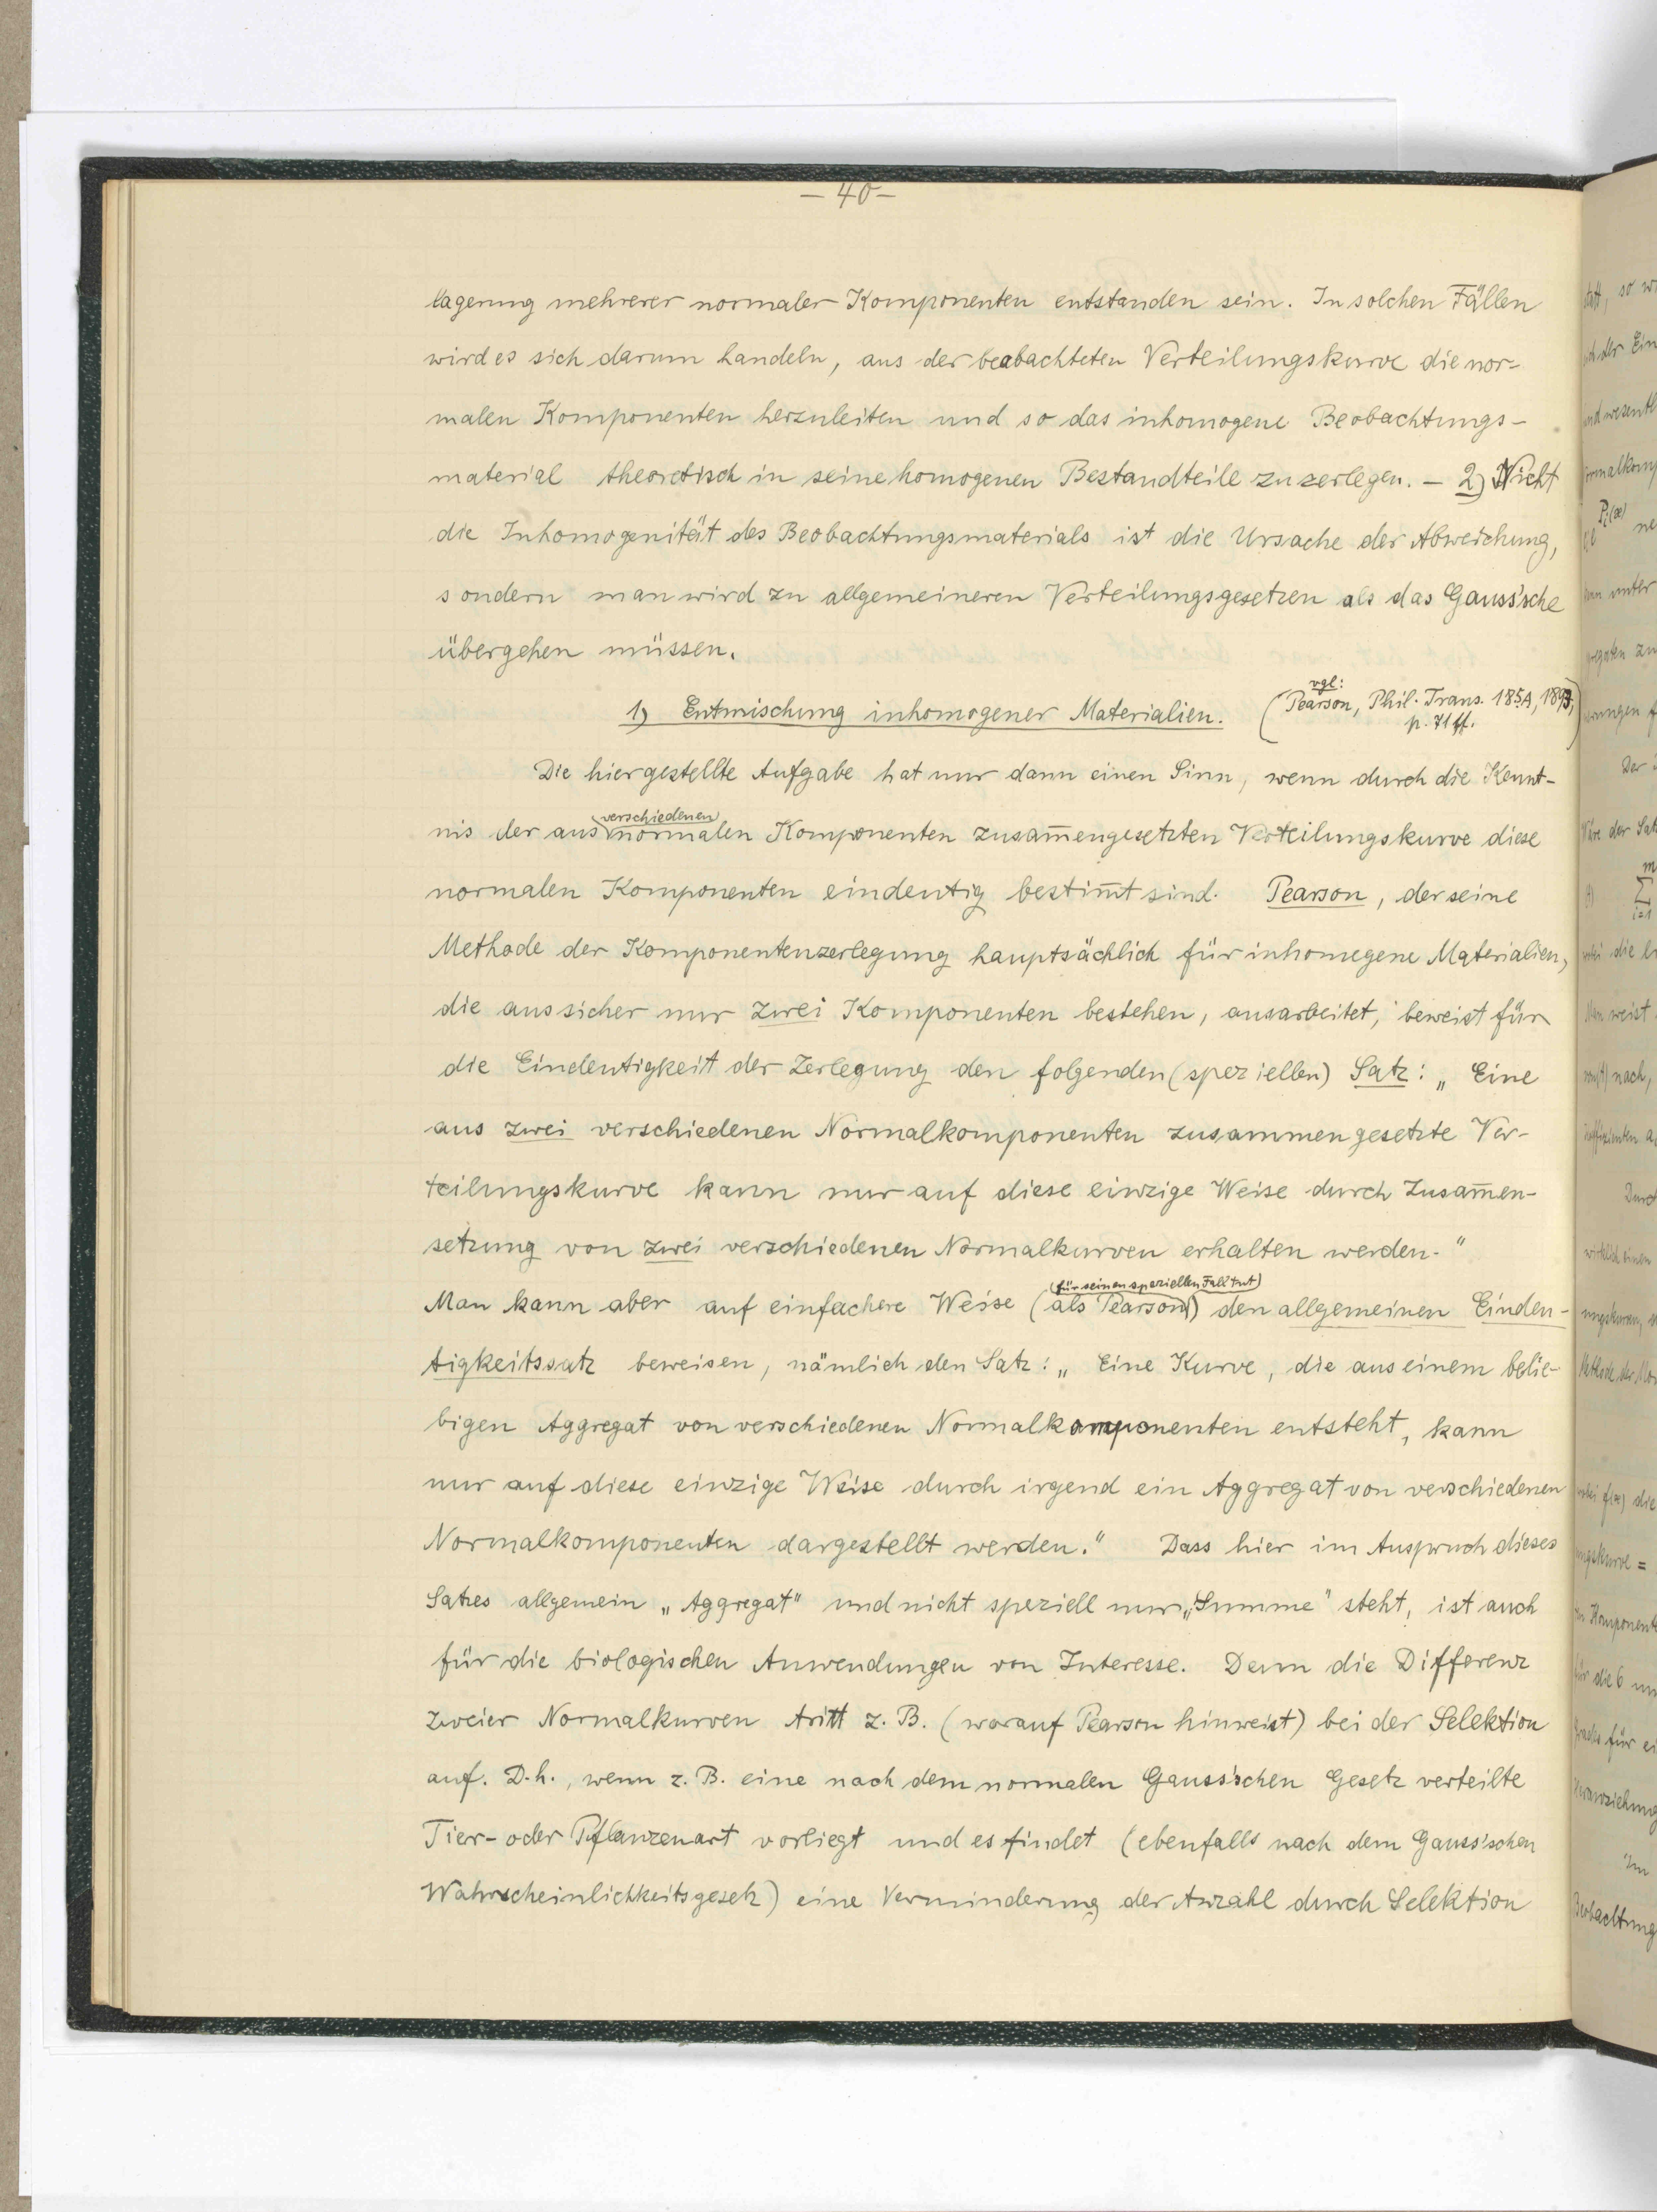 — 40 —
lagerung mehrerer normaler Komponenten entstanden sein. In solchen Fällen
wird es sich darum handeln, aus der beobachteten Verteilungskurve die nor-
malen Komponenten herzuleiten und so das inhomogene Beobachtungs-
material theoretisch in seine homogenen Bestandteile zu zerlegen. — 2) Nicht
die Inhomogenität des Beobachtungsmaterials ist die Ursache der Abweichung,
sondern man wird zu allgemeineren Verteilungsgesetzen als das Gauss'sche
übergehen müssen.
1) Entmischung inhomogener Materialien. (vgl: Pearson, Phil. Trans. 185A,
p. 71 ff.)
Die hier gestellte Aufgabe hat nur dann einen Sinn, wenn durch die Kennt-
nis der aus verschiedenen normalen Komponenten zusam̅engesetzten Verteilungskurve diese
normalen Komponenten eindeutig bestim̅t sind. Pearson, der seine
Methode der Komponentenzerlegung hauptsächlich für inhomegene Materialien,
die aus sicher nur zwei Komponenten bestehen, ausarbeitet, beweist für
die Eindeutigkeit der Zerlegung den folgenden (speziellen) Satz: „Eine
aus zwei verschiedenen Normalkomponenten zusammengesetzte Ver-
teilungskurve kann nur auf diese einzige Weise durch Zusam̅en-
setzung von zwei verschiedenen Normalkurven erhalten werden."
Man kann aber auf einfachere Weise (als Pearson (für seinen speziellen Fall tut)) den allgemeinen Eindeu-
tigkeitssatz beweisen, nämlich den Satz: „Eine Kurve, die aus einem belie-
bigen Aggregat von verschiedenen Normalkomponenten entsteht, kann
nur auf diese einzige Weise durch irgend ein Aggregat von verschiedenen
Normalkomponenten dargestellt werden." Dass hier im Auspruch dieses
Satzes allgemein „Aggregat" und nicht speziell nur „Summe" steht, ist auch
für die biologischen Anwendungen von Interesse. Denn die Differenz
zweier Normalkurven tritt z. B. (worauf Pearson hinweist) bei der Selektion
auf. D.h., wenn z. B. eine nach dem normalen Gauss'schen Gesetz verteilte
Tier- oder Pflanzenart vorliegt und es findet (ebenfalls nach dem Gauss'schen
Wahrscheinlichkeitsgesetz) eine Verminderung der Anzahl durch Selektion